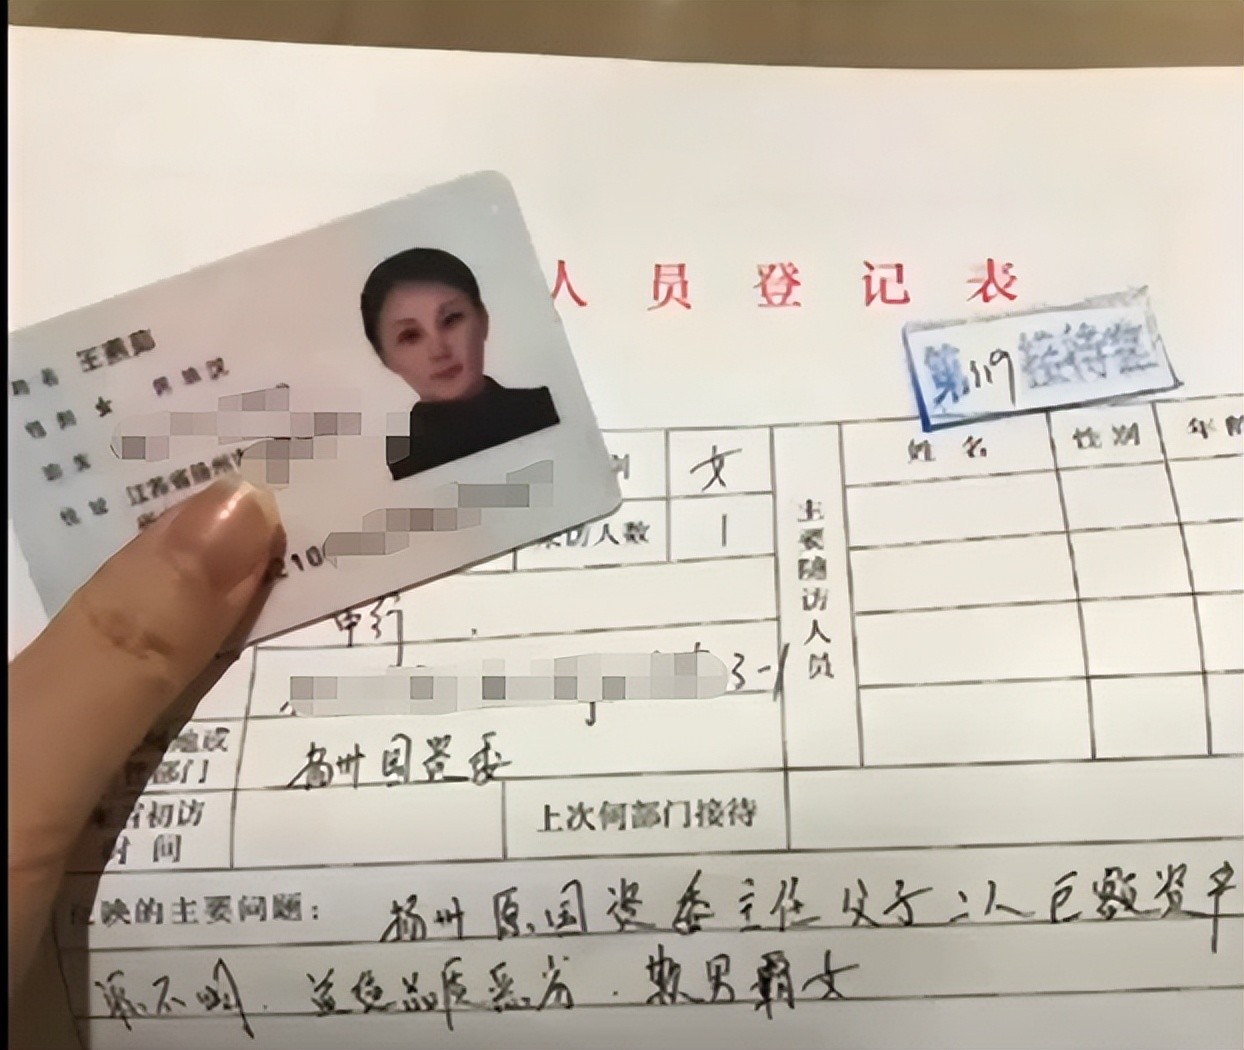 人员登记表
第319接待室
姓名 王燕茹
性别 女 民族 汉
出生
住址 江苏省扬州
210
别 女
来访人数 1
主要随访人员
姓名 性别 年龄
申诉
3-1
地或
部门 扬州国资委
来省初访
时间
上次何部门接待
反映的主要问题：扬州原国资委主任父子二人巨额资产
来源不明. 道德品质恶劣. 欺男霸女